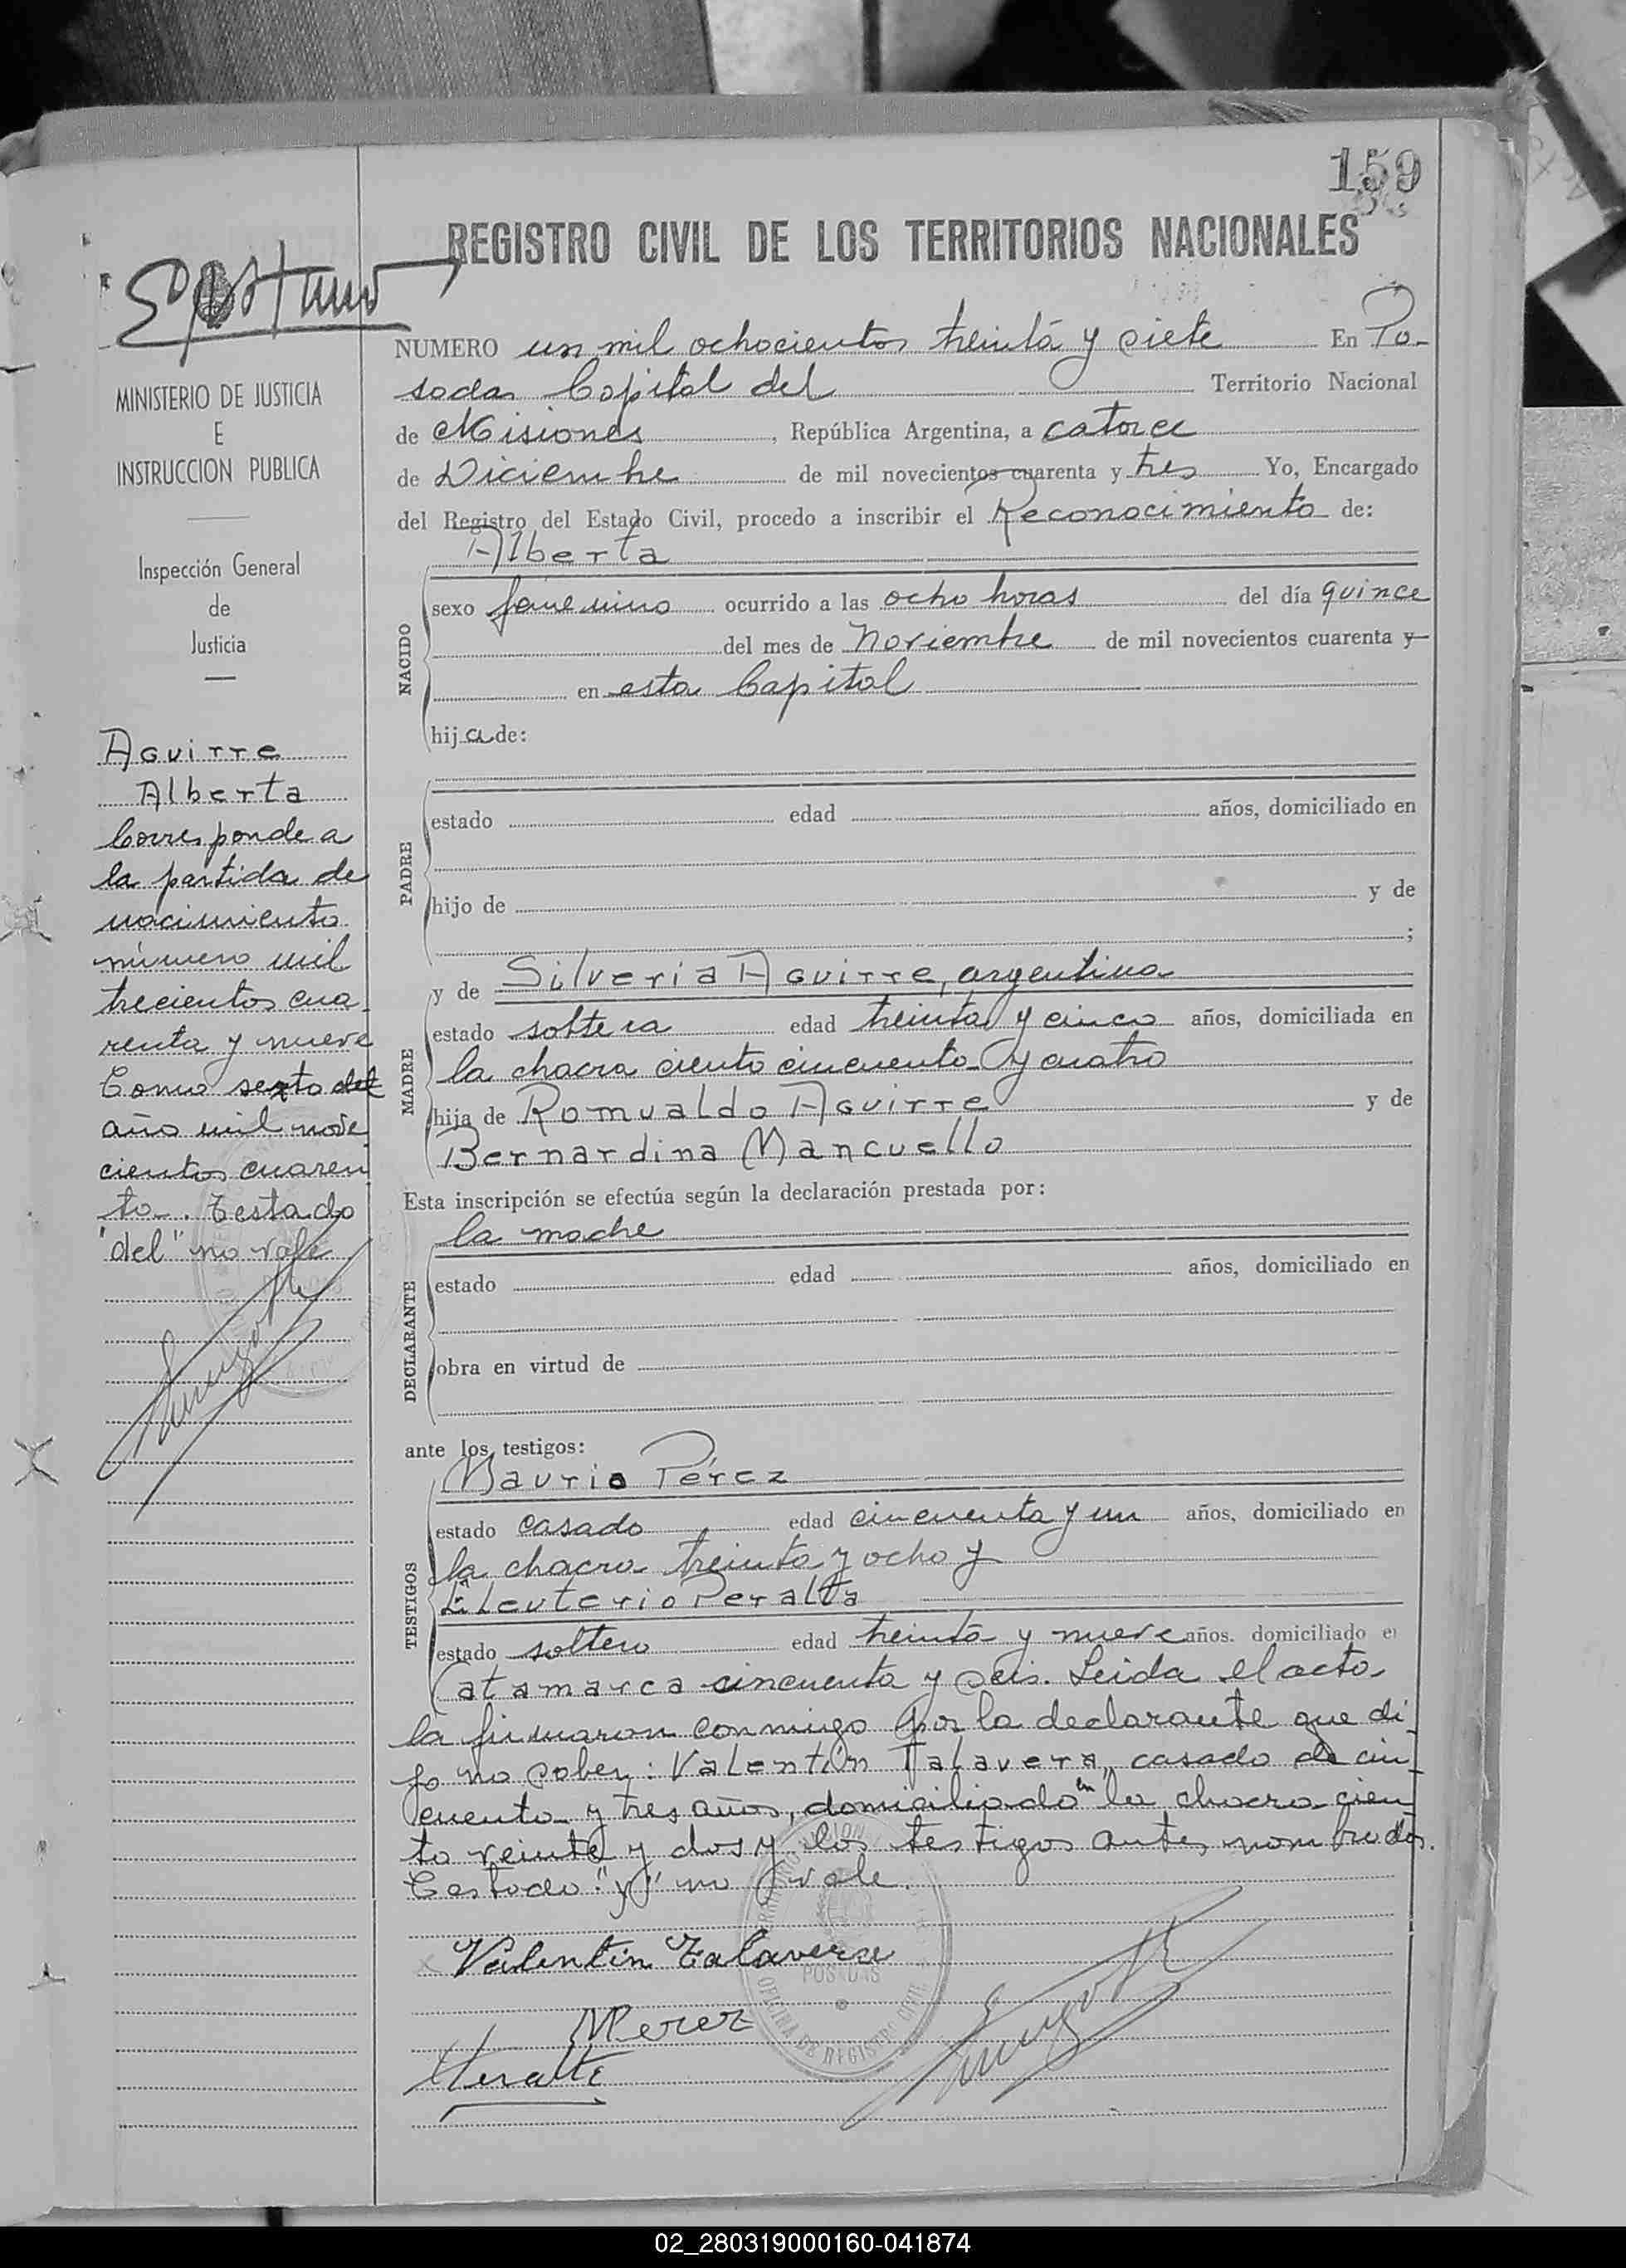 159
REGISTRO CIVIL DE LOS TERRITORIOS NACIONALES
MINISTERIO DE JUSTICIA
E
INSTRUCCION PUBLICA
Inspección General
de
Justicia
Aguirre
Alberta
Corresponde a
la partida de
nacimiento
número mil
trecientos cua
renta y nueve
Tomo sexto del
año mil nove
cientos cuaren
ta. Testado
"del" no vale
NUMERO un mil ochocientos treinta y siete En Po-
sadas Capital del Territorio Nacional
de Misiones, República Argentina, a catorce
de Diciembre de mil novecientos cuarenta y tres Yo, Encargado
del Registro del Estado Civil, procedo a inscribir el Reconocimiento de:
Alberta
NACIDO
sexo femenino ocurrido a las ocho horas del día quince
del mes de Noviembre de mil novecientos cuarenta y
en esta Capital
hija de:
PADRE
estado edad años, domiciliado en
hijo de y de
;
MADRE
y de Silveria Aguirre, argentina
estado soltera edad treinta y cinco años, domiciliada en
la chacra ciento cincuenta y cuatro
hija de Romualdo Aguirre y de
Bernardina Mancuello
Esta inscripción se efectúa según la declaración prestada por:
la madre
DECLARANTE
estado edad años, domiciliado en
obra en virtud de
ante los testigos:
TESTIGOS
Maurio Pérez
estado casado edad cincuenta y un años, domiciliado en
la chacra treinta y ocho y
Eleuterio Peralta
estado soltero edad treinta y nueve años. domiciliado e
Catamarca cincuenta y seis. Leida el acta
la firmaron conmigo por la declarante que di
jo no saber: Valentín Talavera, casado de cin
cuenta y tres años, domiciliado en la chacra cien
to veinte y dos y los testigos antes nombrados.
Testado: "y" no vale.
Valentin Talavera
MPerez
Peralta
POSADAS
OFICINA DE REGISTRO CIVIL
02_280319000160-041874